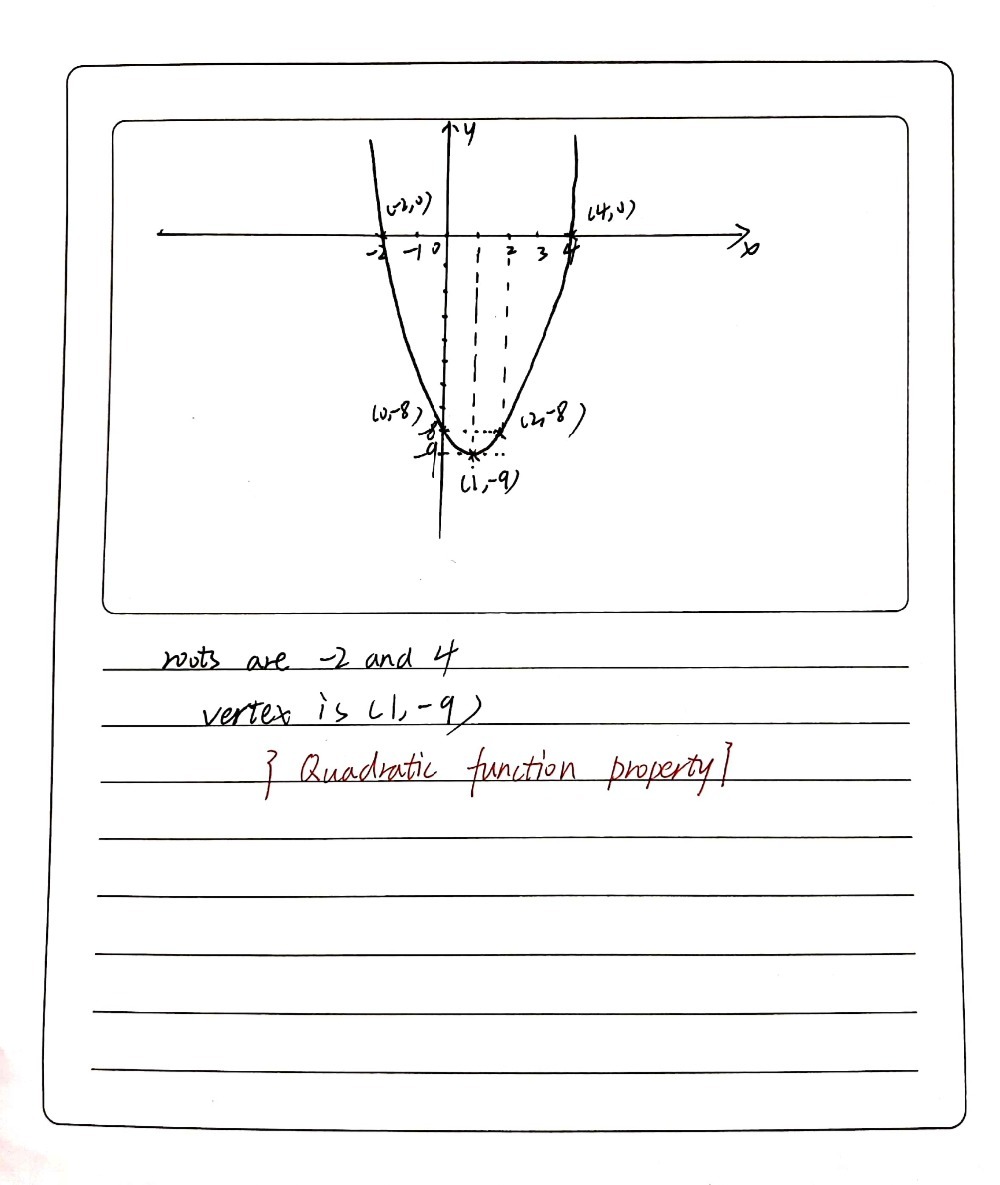 y
(-2,0)
(4,0)
-2 -1 0 1 2 3 4 x
(0,-8) -8 (2,-8)
-9
(1,-9)
roots are -2 and 4
vertex is (1, -9)
} Quadratic function property}